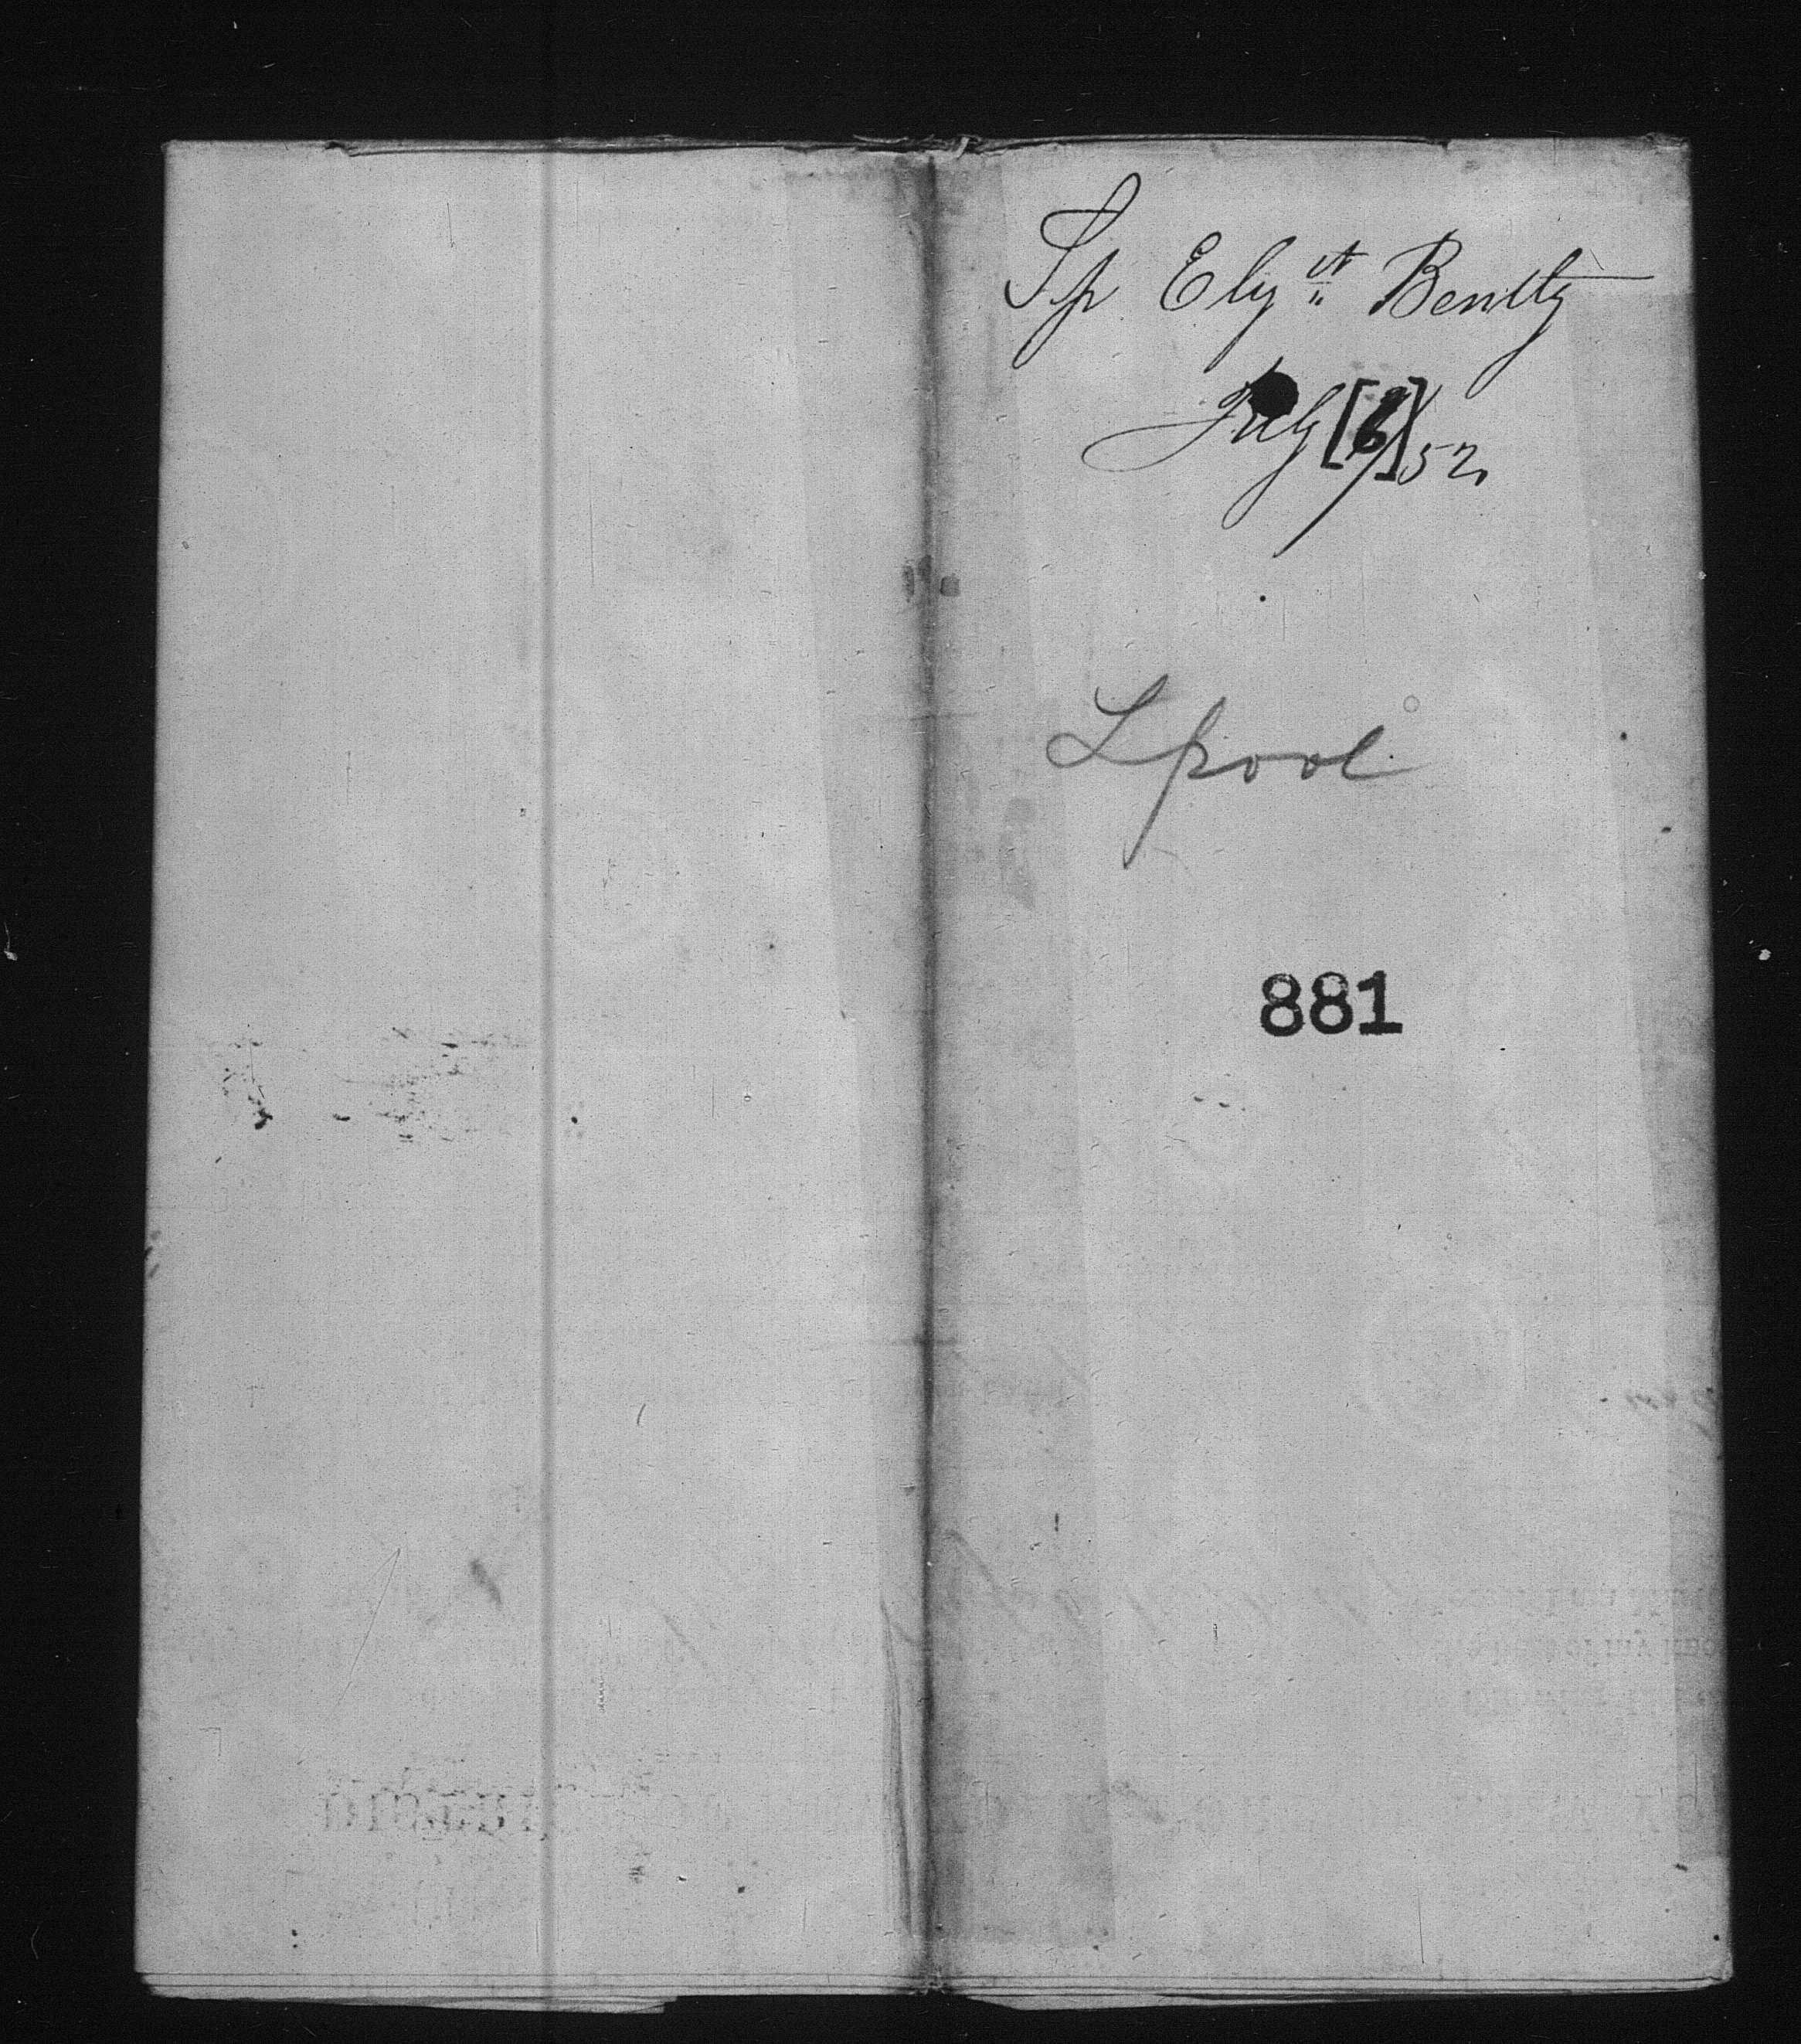 Sp Elyz.th Bently
July [6]/52.
Lpool
881